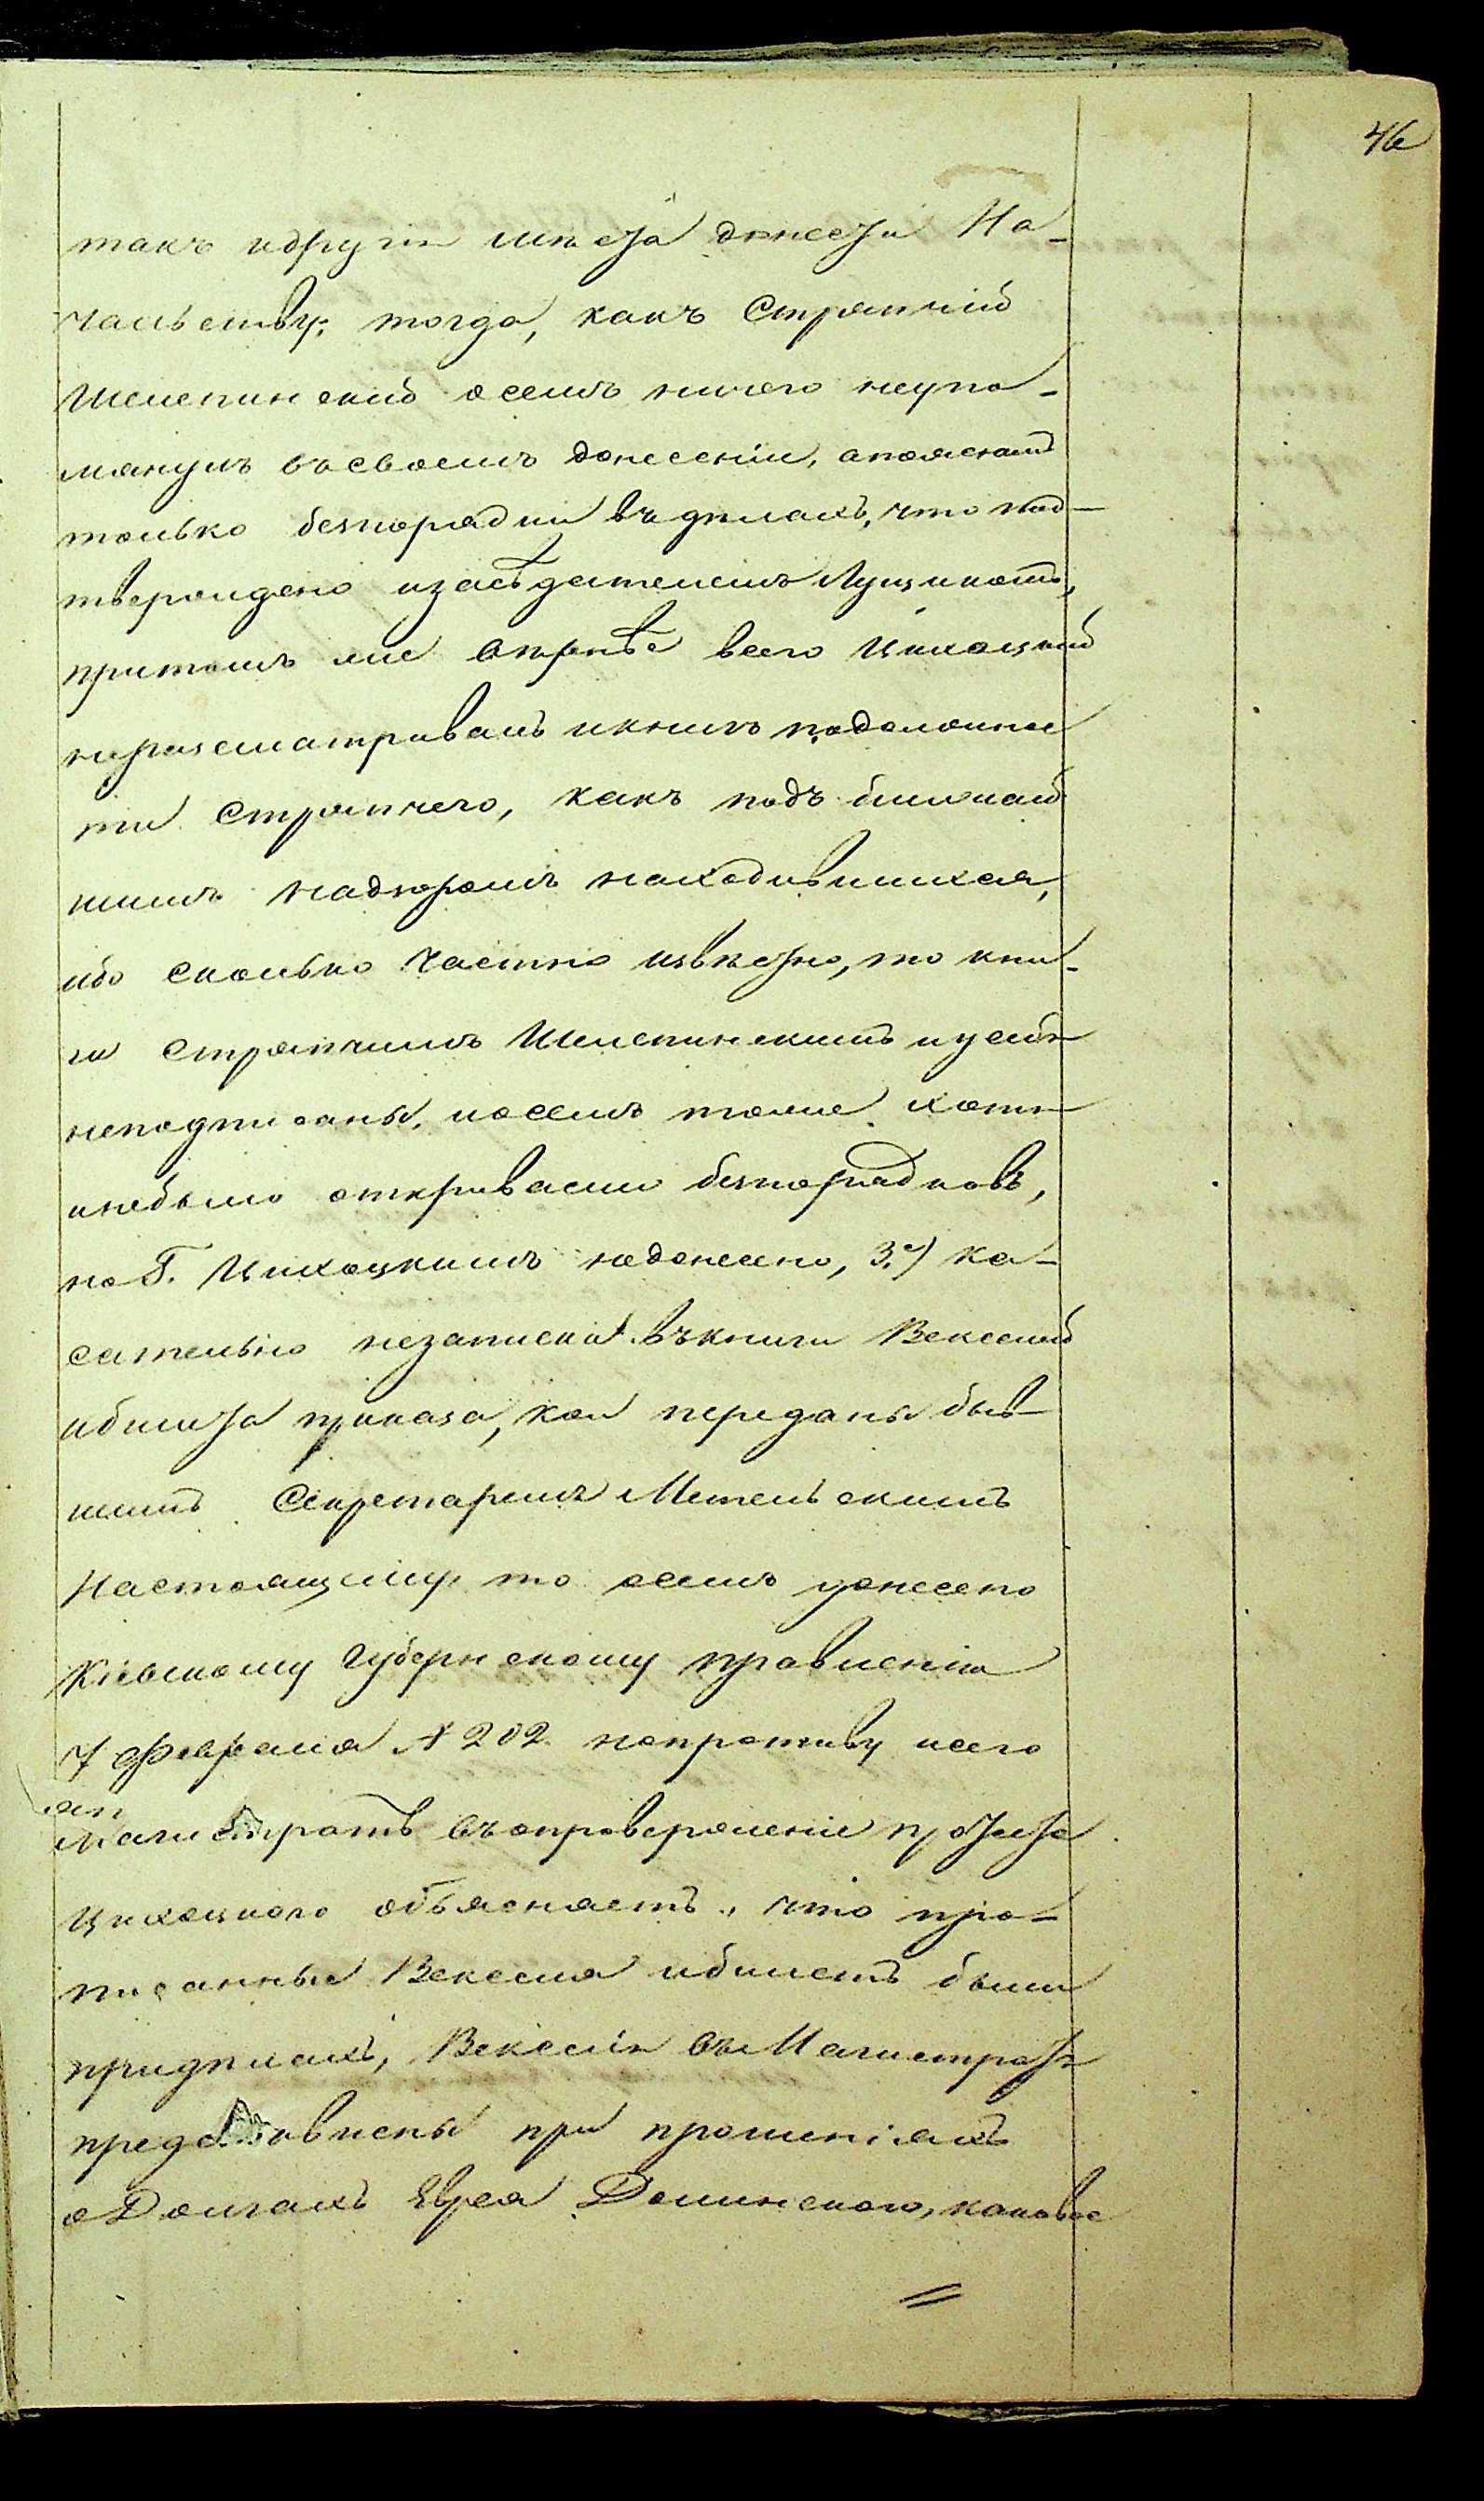 46
такъ идругія мѣста донести На-
чальству; тогда, какъ Стряпчій
Шелепинский осемъ ничего неупо-
мянулъ въсвоемъ донесеніи, апояснилъ
только безпорядки въдѣлахъ, что под-
тверждено изасѣдателемъ Лущикомъ,
притомъ же впрочемъ всего Цихоцкий
неразсматривалъ икнигъ подолжнос
ти Стряпчего, какъ подъ ближай
шимъ надзоромъ находившихся,
ибо сколько частно извѣстно, то кни-
ги Стряпчимъ Шелепинскимъ
неподписаны, иосемъ тоже хотя
инебыло открываемо безпорядковъ,
но Г. Цихоцкимъ недонесено, 3е) ка-
сательно незаписки въкниги Векселей
ибилета приказа, кои переданы быв-
шимъ Секретаремъ Метельскимъ
Настоящему, то осемъ донесено
Кіевскому Губернскому правленію
7 Февраля № 202. напротиву чего
Магистратъ въопроверженіе протеста
Цихоцкаго объясняетъ, что про-
писанные Векселя ибилетъ были
придѣлахъ, Векселя въ Магистратъ
представлены при прошеніяхъ
оДолгахъ Еврея Долинскаго, каковые